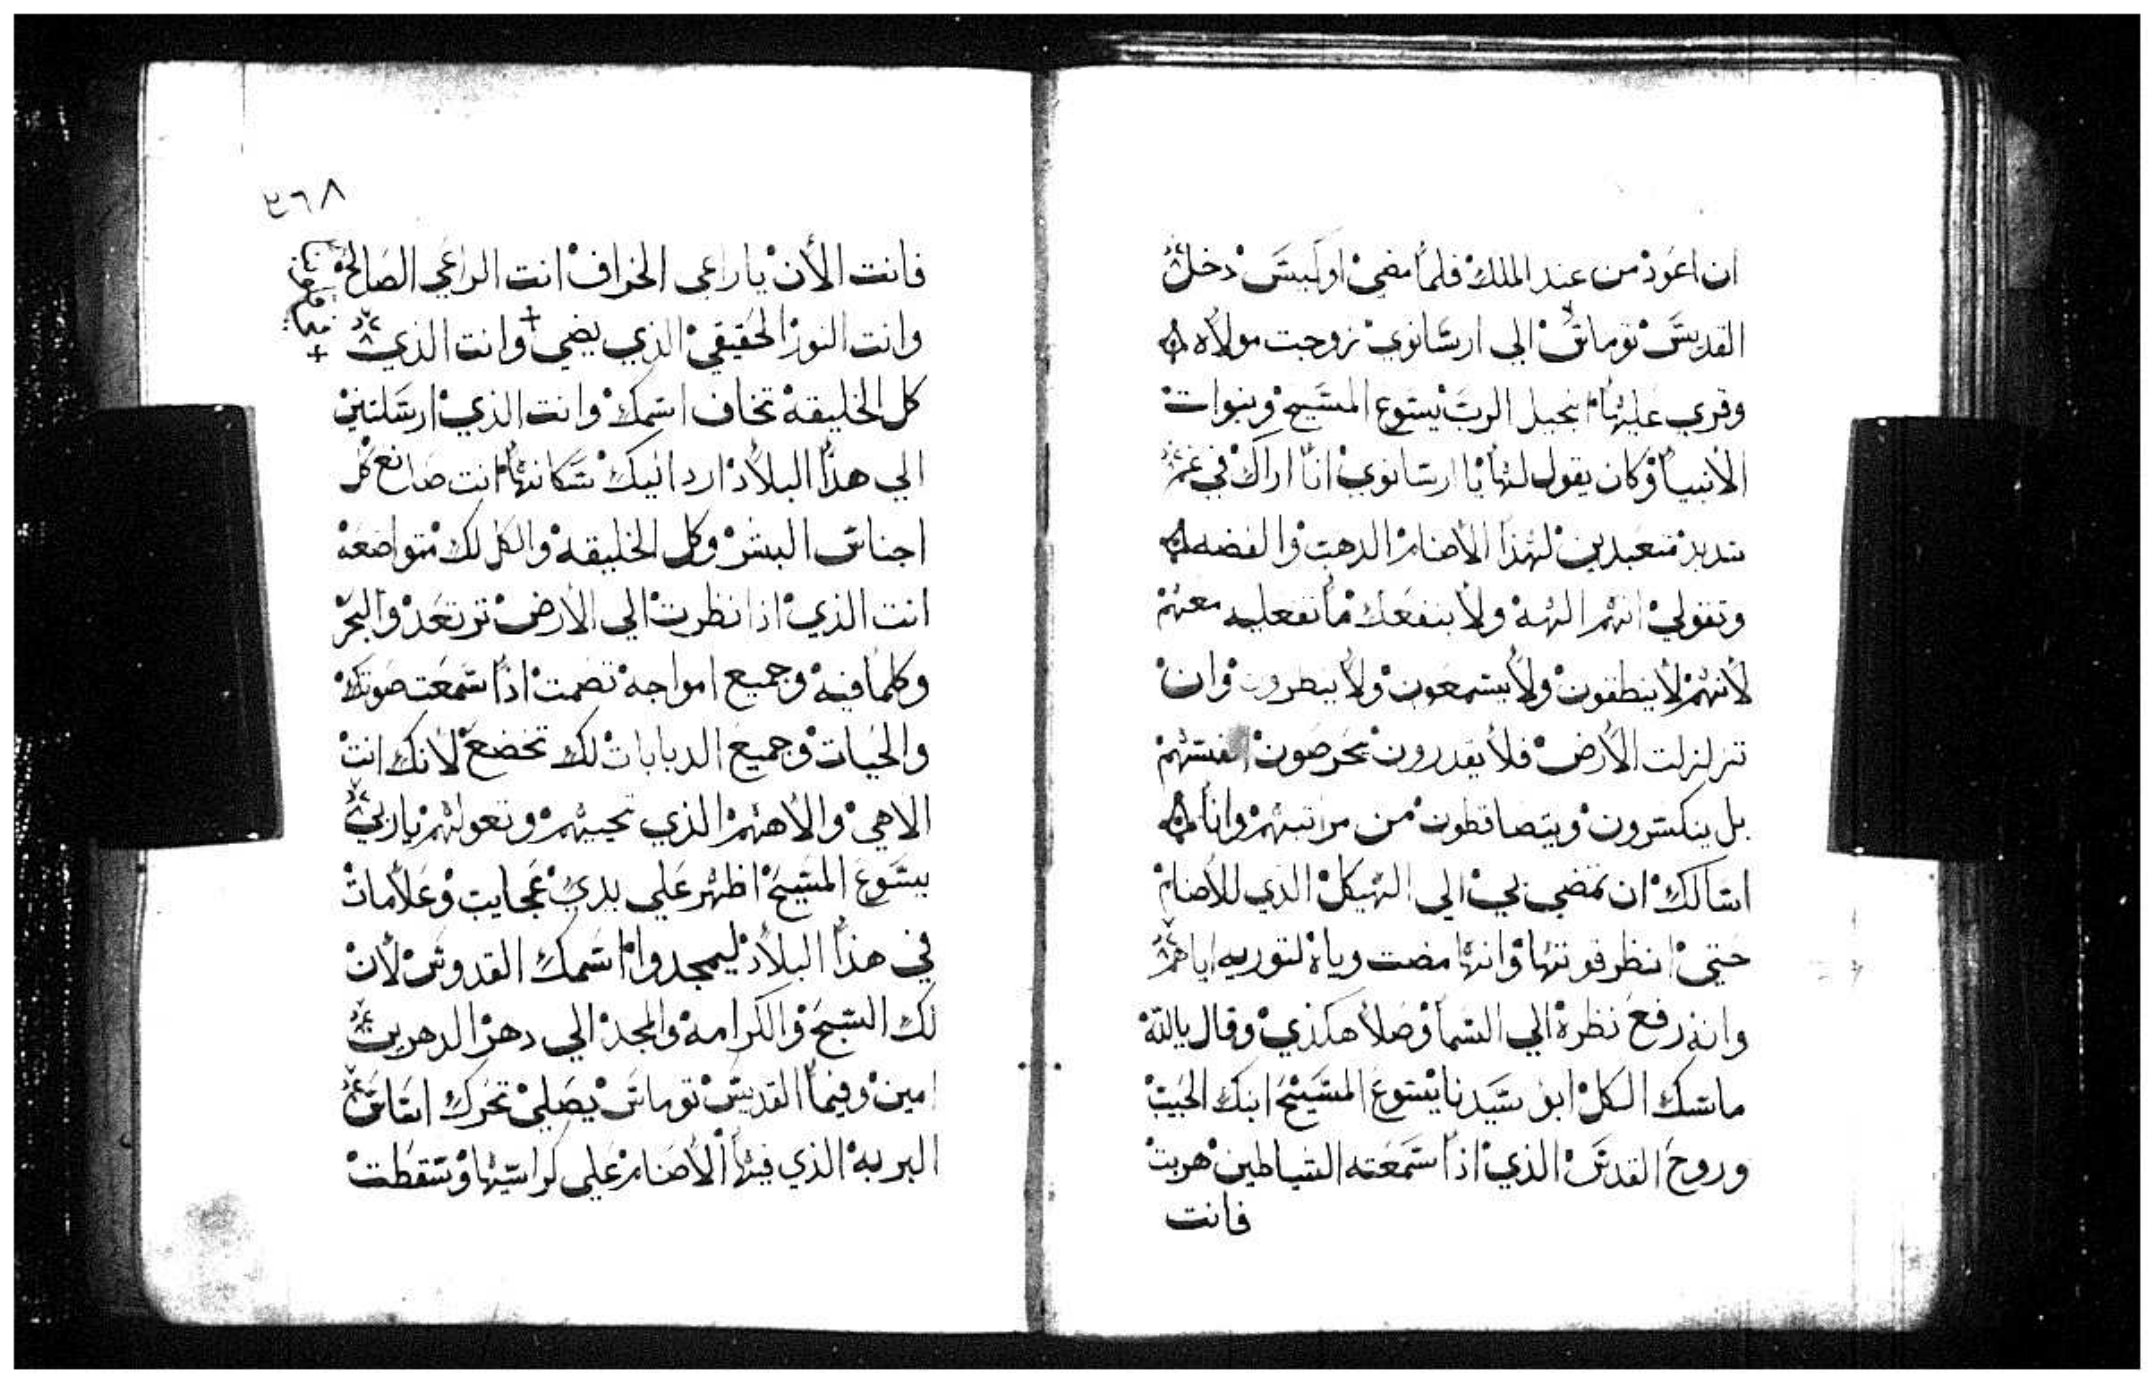 ان اعود من عند الملك فلما مضي اوكيس دخل
القديس توماس الي ارسانوي زوجت مولاه
وقري عليها انجيل الرب يسوع المسيح ونبوات
الأنبيا وكان يقول لها يا ارسانوي انا اراك في غم
شديد متعبدين لهذا الأصنام الدهب والفضه
وتقولي انهم الهة ولا ينفعك ما تفعليه معهم
لأنهم لا ينطقون ولا يسمعون ولا ينظرون وان
تزلزلت الأرض فلا يقدرون يحرصون انفسهم
بل ينكسرون ويتصاقطون من مراتبهم وانا
اسالك ان تمضي بي الي الهيكل الذي للأصنام
حتي انظر قوتها وانها مضت وياه لتوريه اياهم
وانه رفع نظره الي السما وصلا هكذي وقال يالله
ماسك الكل ابو سيدنا يسوع المسيح ابنك الحبيب
وروح القدس الذي اذا سمعته الشياطين هربت
فانت
٢٦٨
فانت الأن يا راعي الخراف انت الراعي الصالح
وانت النور الحقيقي الذي يضي وانت الذي
كل الخليقه تخاف اسمك وانت الذي ارسلتني
الي هذا البلاد ارد اليك سكانها انت صانع كل
اجناس البشر وكل الخليقه والكل لك متواضعه
انت الذي اذا نظرت الي الأرض ترتعد والبحر
وكلما فيه وجميع امواجه تصمت اذا سمعت صوتك
والحيات وجميع الدبابات لك تخضع لأنك انت
الاهي والأههم الذي تحييهم وتعولهم يا ربي
يسوع المسيح اظهر علي يدي عجايب وعلامات
في هذا البلاد ليمجدوا اسمك القدوس لأن
لك السبح والكرامه والمجد الي دهر الدهرين
امين وفيما القديس توماس يصلي تحرك اساس
البربه الذي فيها الأصنام علي كراسيها وسقطت